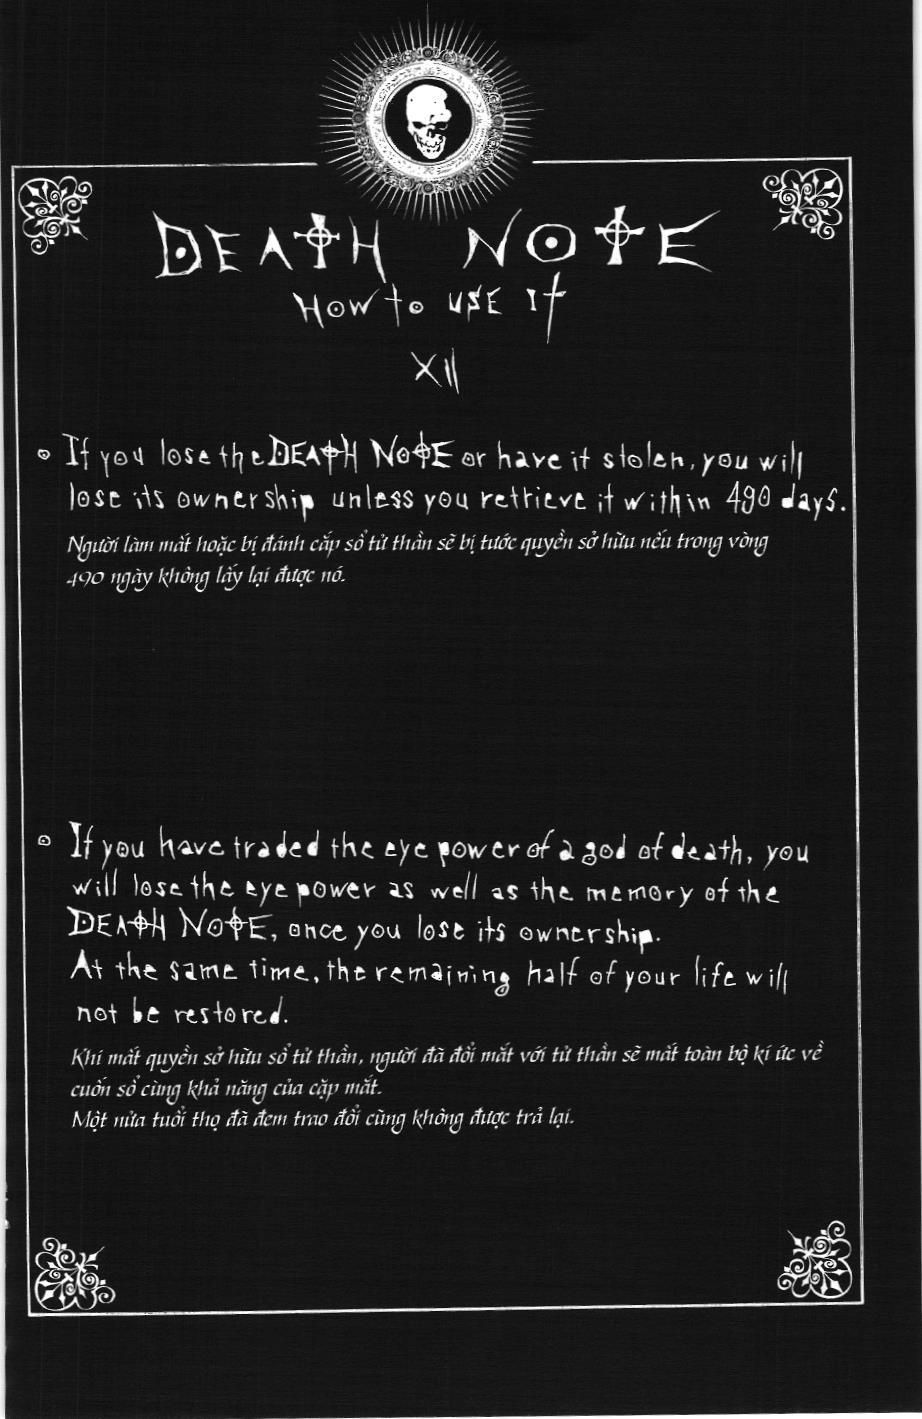 DEATH NOTE
How to use it
XII
If you lose the DEATH NOTE or have it stolen, you will
lose its ownership unless you retrieve it within 490 days.
Người làm mất hoặc bị đánh cắp sổ tử thần sẽ bị tước quyền sở hữu nếu trong vòng
490 ngày không lấy lại được nó.
If you have traded the eye power of a god of death, you
will lose the eye power as well as the memory of the
DEATH NOTE, once you lose its ownership.
At the same time, the remaining half of your life will
not be restored.
Khi mất quyền sở hữu sổ tử thần, người đã đổi mắt với tử thần sẽ mất toàn bộ kí ức về
cuốn sổ cùng khả năng của cặp mắt.
Một nửa tuổi thọ đã đem trao đổi cũng không được trả lại.